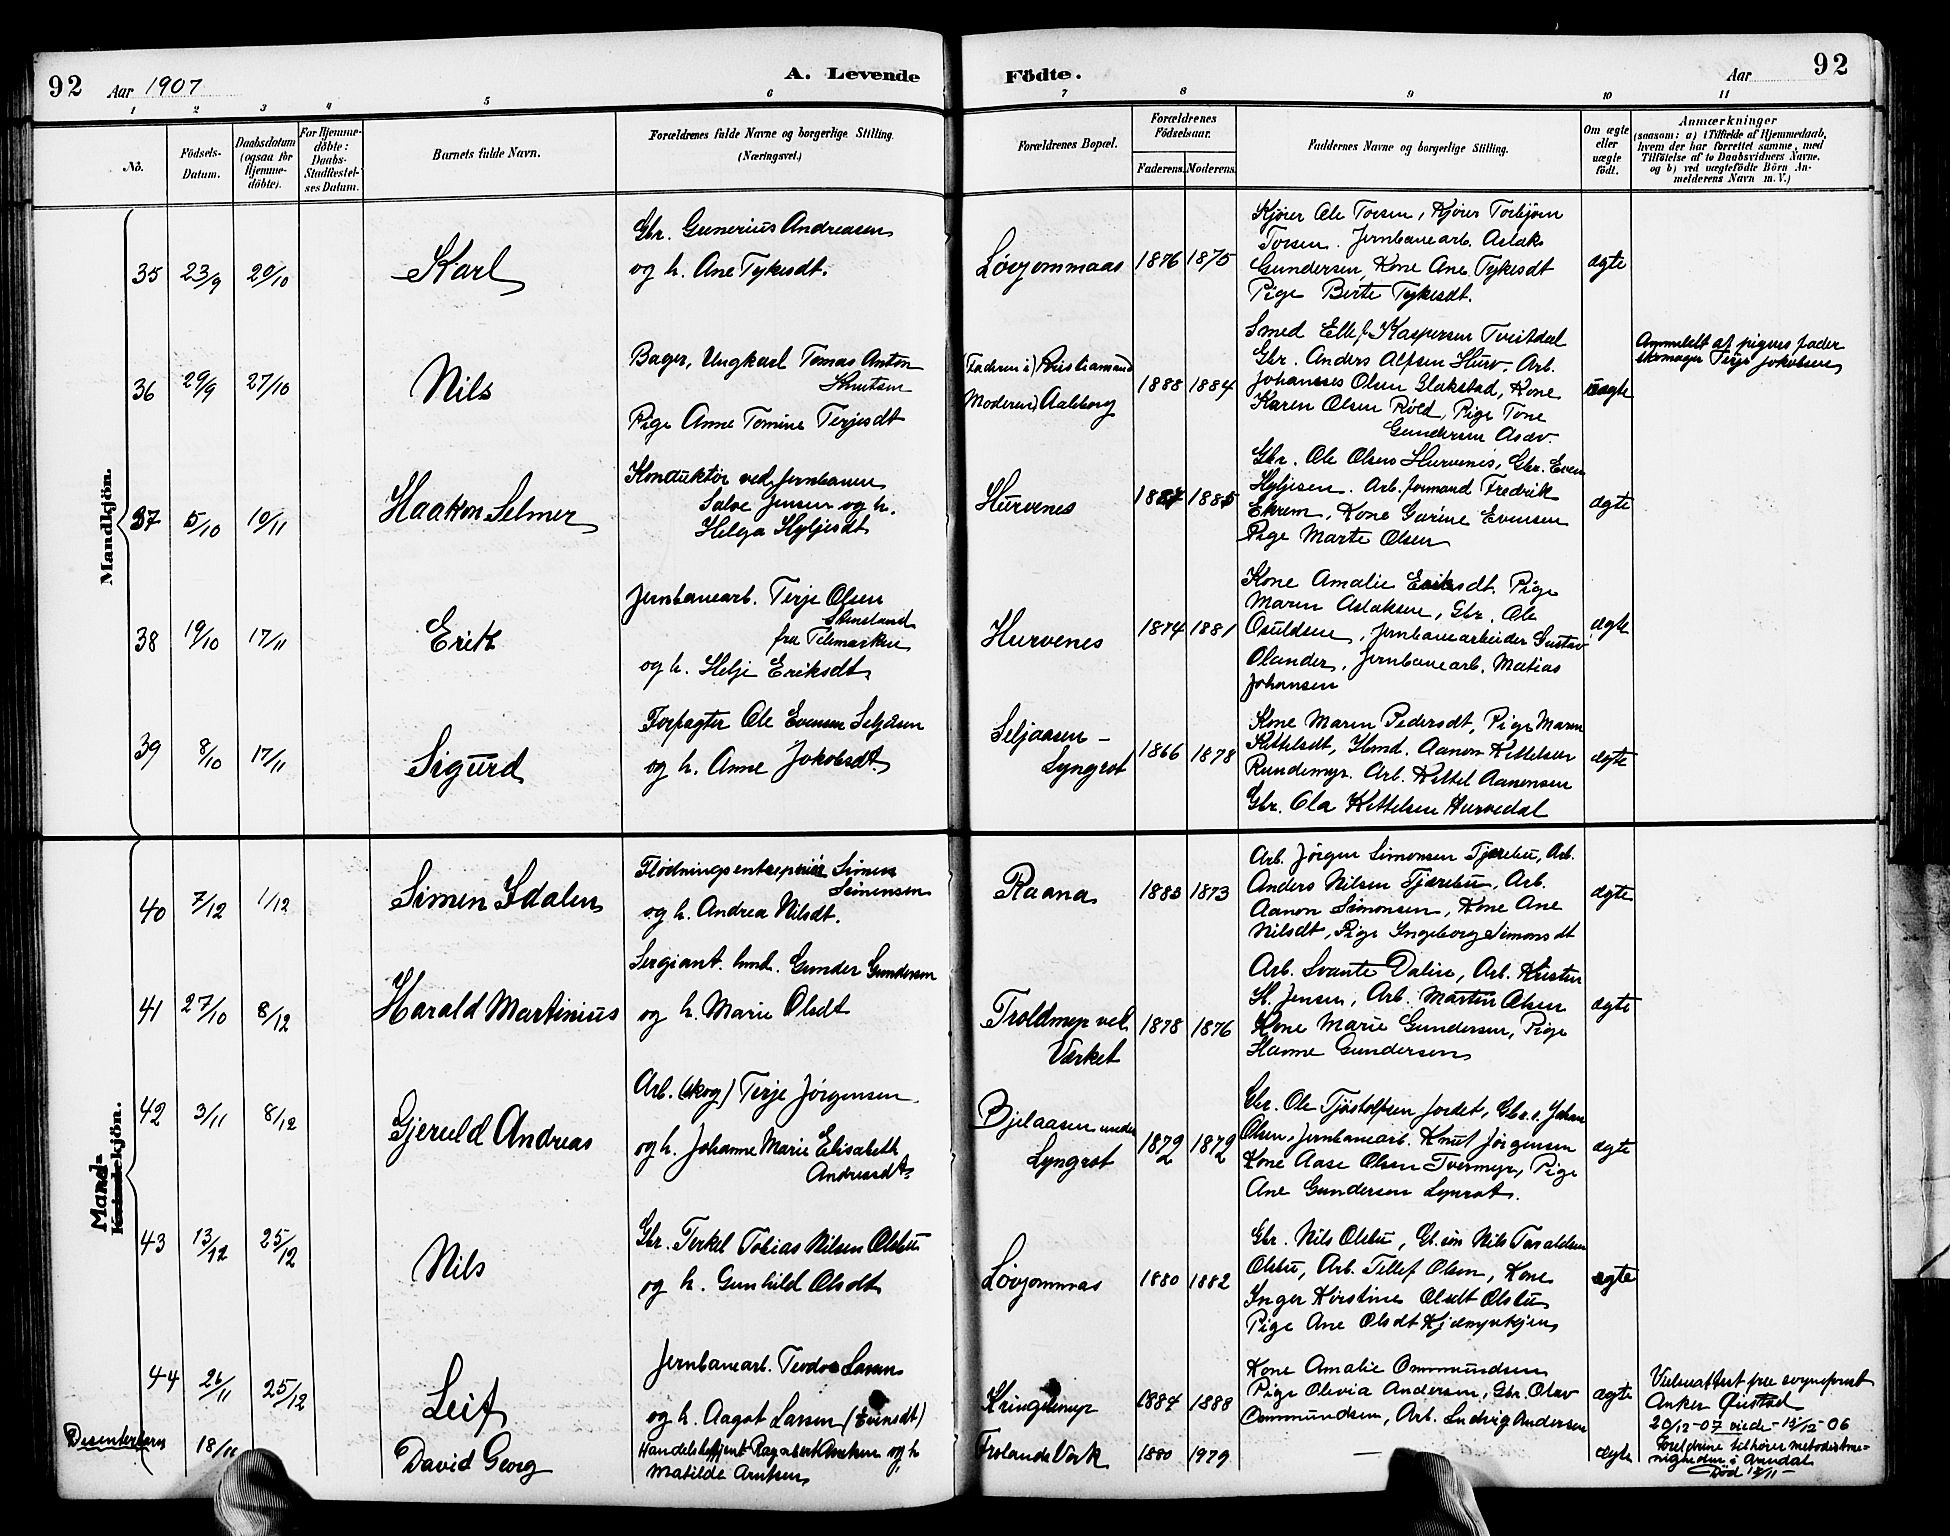 92 Aar 1907 A. Levende Födte. Aar 92
1 2 3 4 5 6 7 8 9 10 11
No.
Födsels-Datum.
Daabsdatum (ogsaa for Hjemme-döbte).
For Hjemme-döbte: Daabs-Stadfæstel-ses Datum.
Barnets fulde Navn.
Forældrenes fulde Navne og borgerlige Stilling. (Næringsvei.)
Forældrenes Bopæl.
Forældrenes Födselsaar.
Faderens. Moderens.
Faddernes Navne og borgerlige Stilling.
Om ægte eller uægte födt.
Anmærkninger
(saasom: a) i Tilfælde af Hjemmedaab,
hvem der har forrettet samme, med
Tilföielse af to Daabsvidners Navne,
og b) ved uægtefödte Börn An-
melderens Navn m. V.)
Mandkjön.
35 23/9 20/10 Karl
Gbr. Gunerius Andreasen
og h. Ane Tykesdt.
Løvjommaas 1876 1875
Kjører Ole Torsen, Kjører Torbjørn
Torsen. Jernbanearb. Aslak
Gundersen, Kone Ane Tykesdt
Pige Berte Tykesdt.
ægte
36 29/9 27/10 Nils
Bager, Ungkarl Tomas Anton
Knutsen
Pige Anne Tomine Terjesdt
(Faderen i) Kristiansand
Moderen) Aalborg
1888 1884
Smed Ellef Kaspersen Tveitdal
Gbr. Anders Alfsen Hurv, Arb.
Johannes Olsen Glakstad, Kone
Karen Olsen Röld, Pige Tone
Gundersen Asæv
Uægte
Anmeldt af pigens fader
skomager Terje Jakobsen
37 5/10 10/11 Haakon Selmer
Konduktör ved Jernbanen
Salve Jensen og h.
Helga Kyljesdt
Hurvenes 1885
Gbr. Ole Olsen Hurvenes, Gbr. Even
Kyljesen. Arb. formand Fredrik
Ekrem, Kone Gurine Evensen
Pige Marte Olsen
ægte
38 19/10 17/11 Erik
Jernbanearb. Terje Olsen
Stensland
fra Telemarken
og h. Helje Eriksdt
Hurvenes 1874 1881
Kone Amalie Eriksdt. Pige
Maren Aslaksen, Gbr. Ole
Osuldsen, Jernbanearbeider Gustav
Olander, Jernbanearb. Matias
Johansen
ægte
39 8/10 17/11 Sigurd
Forpagter Ole Evensen Seljåsen
og h. Anne Jakobsdt.
Seljaasen –
Lyngrot 1866 1878
Kone Maren Pedersdt, Pige Maren
Kittelsdt, Hmd. Aanon Kittelsen
Rundemyr. Arb. Kittel Aanonsen
Gbr. Ola Kittelsen Hurvedal
ægte
Mand-
Kvindekjön.
40 7/12 1/12 Simen Idalen
Flödningsentreprenör Simen
Simensen
og h. Andrea Nilsdt.
Raana 1883 1873
Arb. Jörgen Simonsen Tjærebu, Arb.
Anders Nilsen Tjærebu, Arb.
Aanon Simonsen, Kone Ane
Nilsdt, Pige Ingeborg Simonsdt
ægte
41 27/10 8/12 Harald Martinius
Sergiant. hmd. Gunder Gundersen
og h. Marie Olsdt
Troldmyr ved
Værket 1878 1876
Arb. Svante Dalin, Arb. Kristen
H. Jensen, Arb. Martin Olsen
Kone Marie Gundersen, Pige
Hanne Gundersen
ægte
42 3/11 8/12 Gjeruld Andreas
Arb. (skog) Terje Jörgensen
og h. Johanne Marie Elisabeth
Andreasdt
Bjelaasen under
Lyngrot 1872 1872
Gbr. Ole Tjöstolfsen Jordet, Gbr.s. Johan
Olsen, Jernbanearb. Knut Jörgensen
Kone Aase Olsen Tvermyr, Pige
Ane Gundersen Lynrot.
ægte
43 13/12 25/12 Nils
Gbr. Terkel Tobias Nilsen Olsbu
og h. Gunhild Olsdt
Løvjommas 1880 1882
Gbr. Nils Olsbu, Gb. sön Nils Taraldsen
Olsbu, Arb. Tellef Olsen, Kone
Inger Kirstine Olsdt Olsbu
Pige Ane Olsdt
ægte
44 26/11 25/12 Leif
Jernbanearb. Teodor Larsen
og h. Aagot Larsen (Evensdt)
Kringlemyr 1884 1888
Kone Amalie Ommundsen
Pige Olevia Andersen, Gbr. Olav
Ommundsen, Arb. Ludvig Andersen
ægte
Vielseattest fra sogneprest
Anker Qustad
20/12-07 viede 15/12-06
Dissenterbarn 18/11 David Georg
Handelsbetjent Arntsen og h
Matilde Arntsen
Frolands Værk 1880 1979 — ægte
Foreldrene tilhører metodistme-
nigheden i Arendal
Död